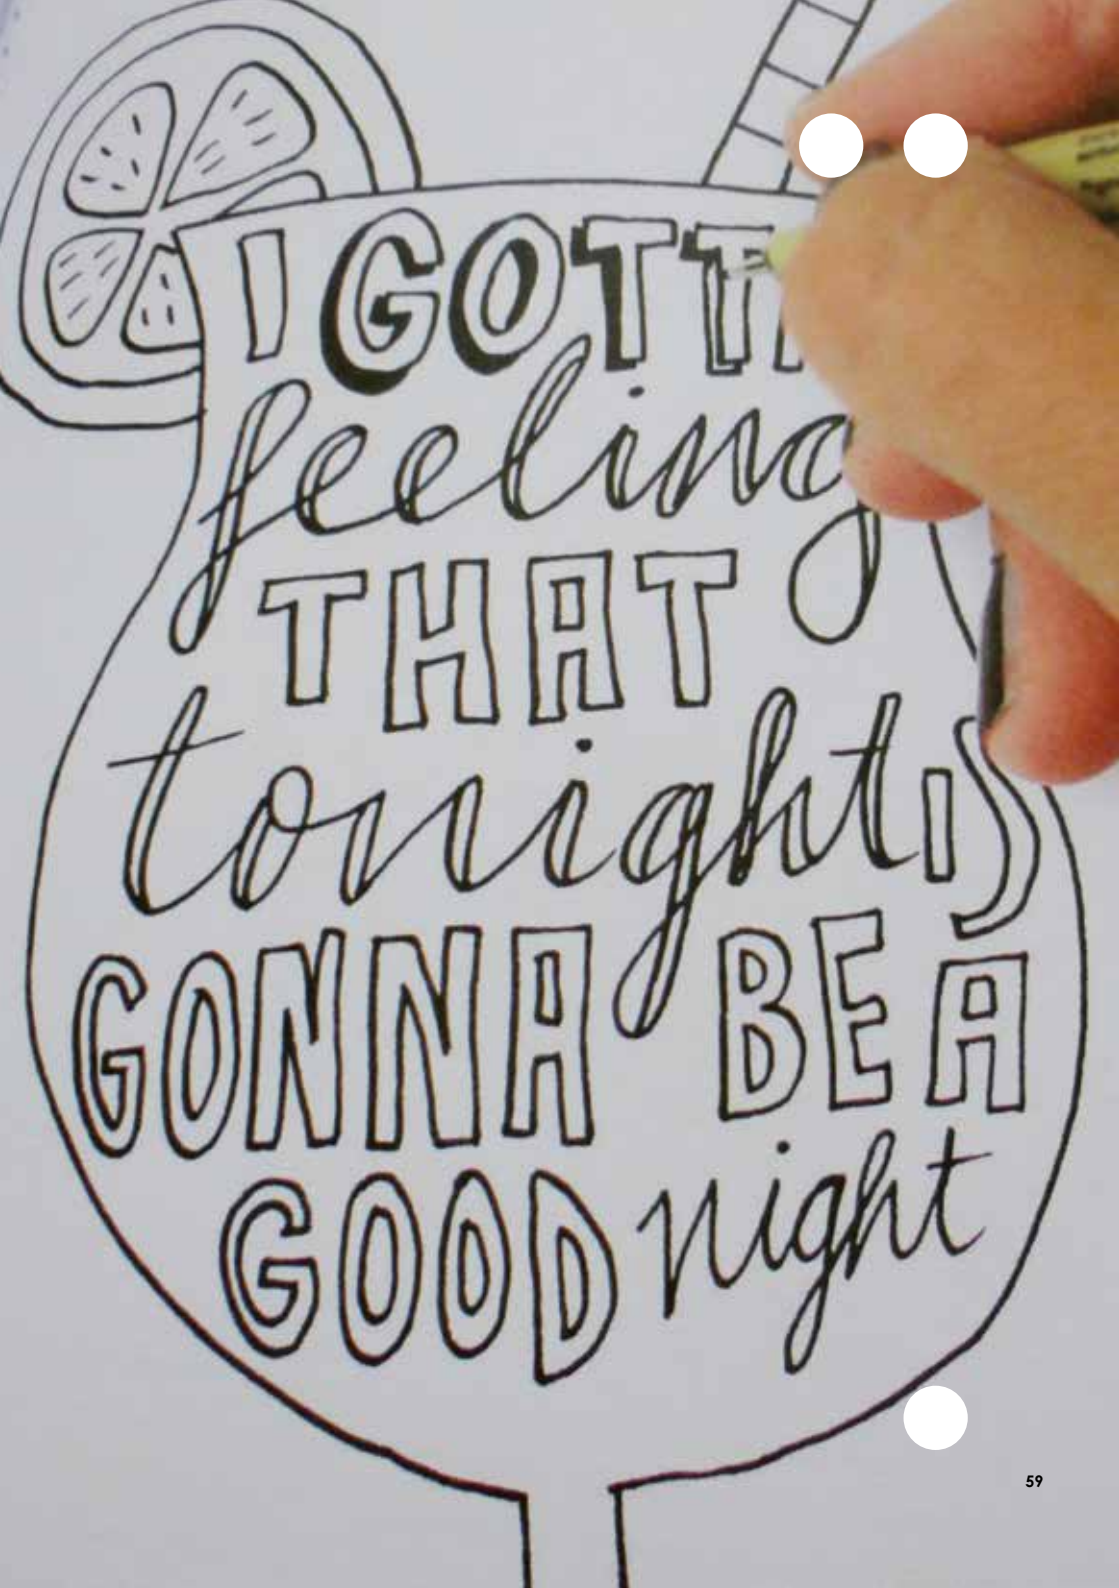 I GOTT
feeling
THAT
tonight IS
GONNA BE A
GOOD night
59